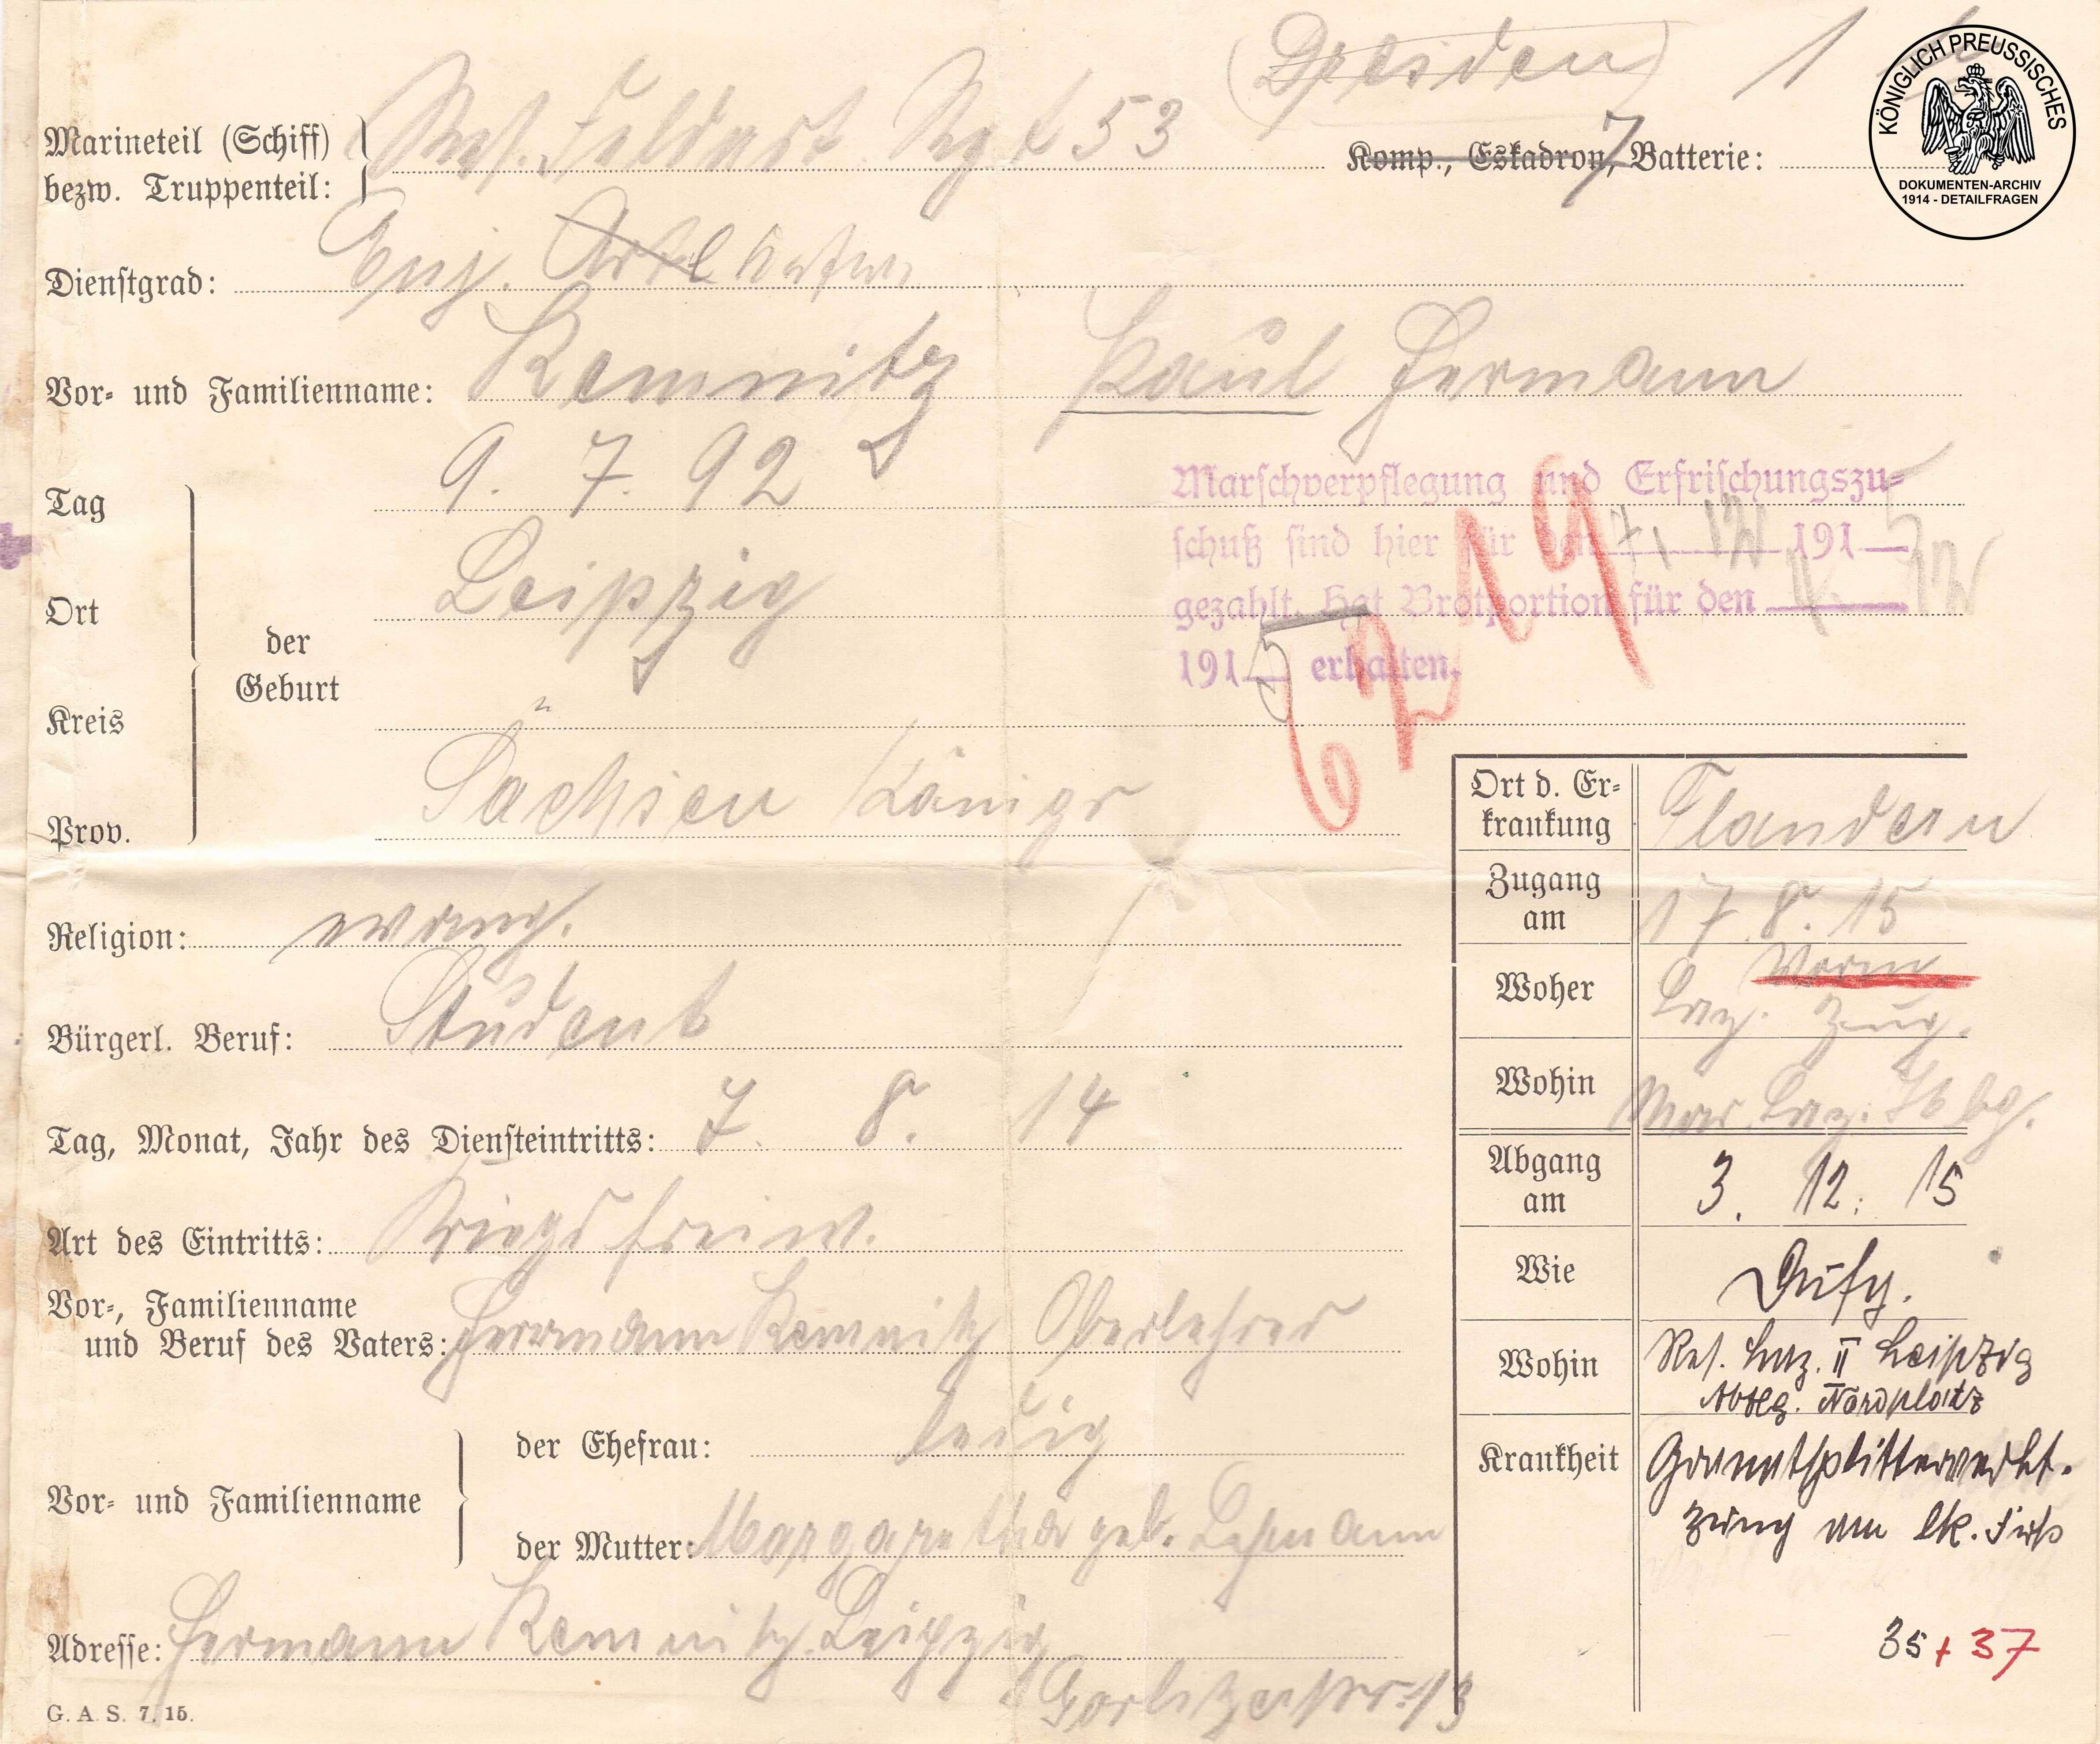 (Dresden) 1
Marineteil (Schiff)
bezw. Truppenteil: Res. Feldart. Rgt 53 Komp., Eskadron, 7 Batterie:
KÖNIGLICH PREUSSISCHES
DOKUMENTEN-ARCHIV
1914 - DETAILFRAGEN
Dienstgrad:
Vor- und Familienname: Kemnitz Paul Hermann
Tag 9. 7. 92
Ort Leipzig
der
Geburt
Kreis "
Prov. Sachsen Königr
Marschverpflegung und Erfrischungszu-
schuß sind hier für den 7. 12 1915
gezahlt. Hat Brotportion für den 4. 12
1915 erhalten.
6219
Religion: evang.
Bürgerl. Beruf: Student
Tag, Monat, Jahr des Diensteintritts: 7. 8. 14
Art des Eintritts: Kriegsfreiw.
Vor-, Familienname
und Beruf des Vaters: Hermann Kemnitz Oberlehrer
Vor- und Familienname
der Ehefrau: ledig
der Mutter: Margarethe geb. Lehmann
Adresse: Hermann Kemnitz Leipzig
Görlitzerstr. 13
G. A. S. 7. 15.
Ort d. Er-
krankung Flandern
Zugang
am 17. 8. 15
Vorm.
Woher Laz. Zug.
Wohin Mar. Laz. Hbg.
Abgang
am 3. 12. 15
Wie
Wohin Res. Laz. II Leipzig
Abtlg. Nordplatz
Krankheit Granatsplitterverlet-
zung am lk. Fuß
35 + 37